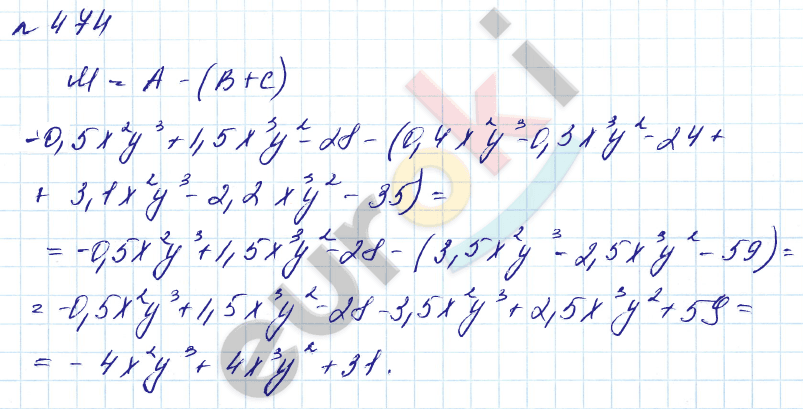 № 474
M = A - (B+C)
-0,5x²y³+1,5x³y²-28-(0,4x²y³-0,3x³y²-24+
+ 3,1x²y³-2,2x³y²-35)=
=-0,5x²y³+1,5x³y²-28-(3,5x²y³-2,5x³y²-59)=
=-0,5x²y³+1,5x³y²-28-3,5x²y³+2,5x³y²+59=
=-4x²y³+4x³y²+31.
euroki